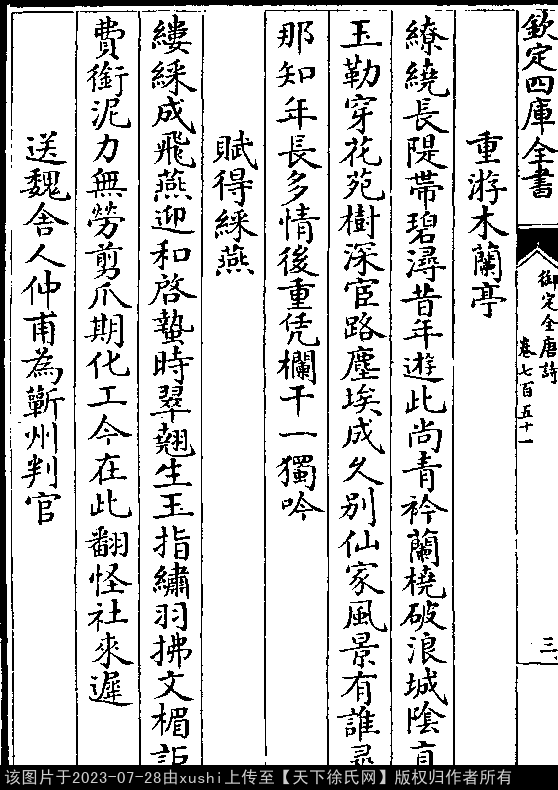 欽定四庫全書
御定全唐詩
卷七百五十一
三
重游木蘭亭
繚繞長隄帶碧潯昔年遊此尚青衿蘭橈破浪城陰直
玉勒穿花苑樹深宦路塵埃成久别仙家風景有誰尋
那知年長多情後重凭欄干一獨吟
賦得綵燕
縷綵成飛燕迎和啓蟄時翠翹生玉指繡羽拂文楣詎
費銜泥力無勞剪爪期化工今在此翻怪社來遲
送魏舍人仲甫為蘄州判官
该图片于2023-07-28由xushi上传至【天下徐氏网】版权归作者所有